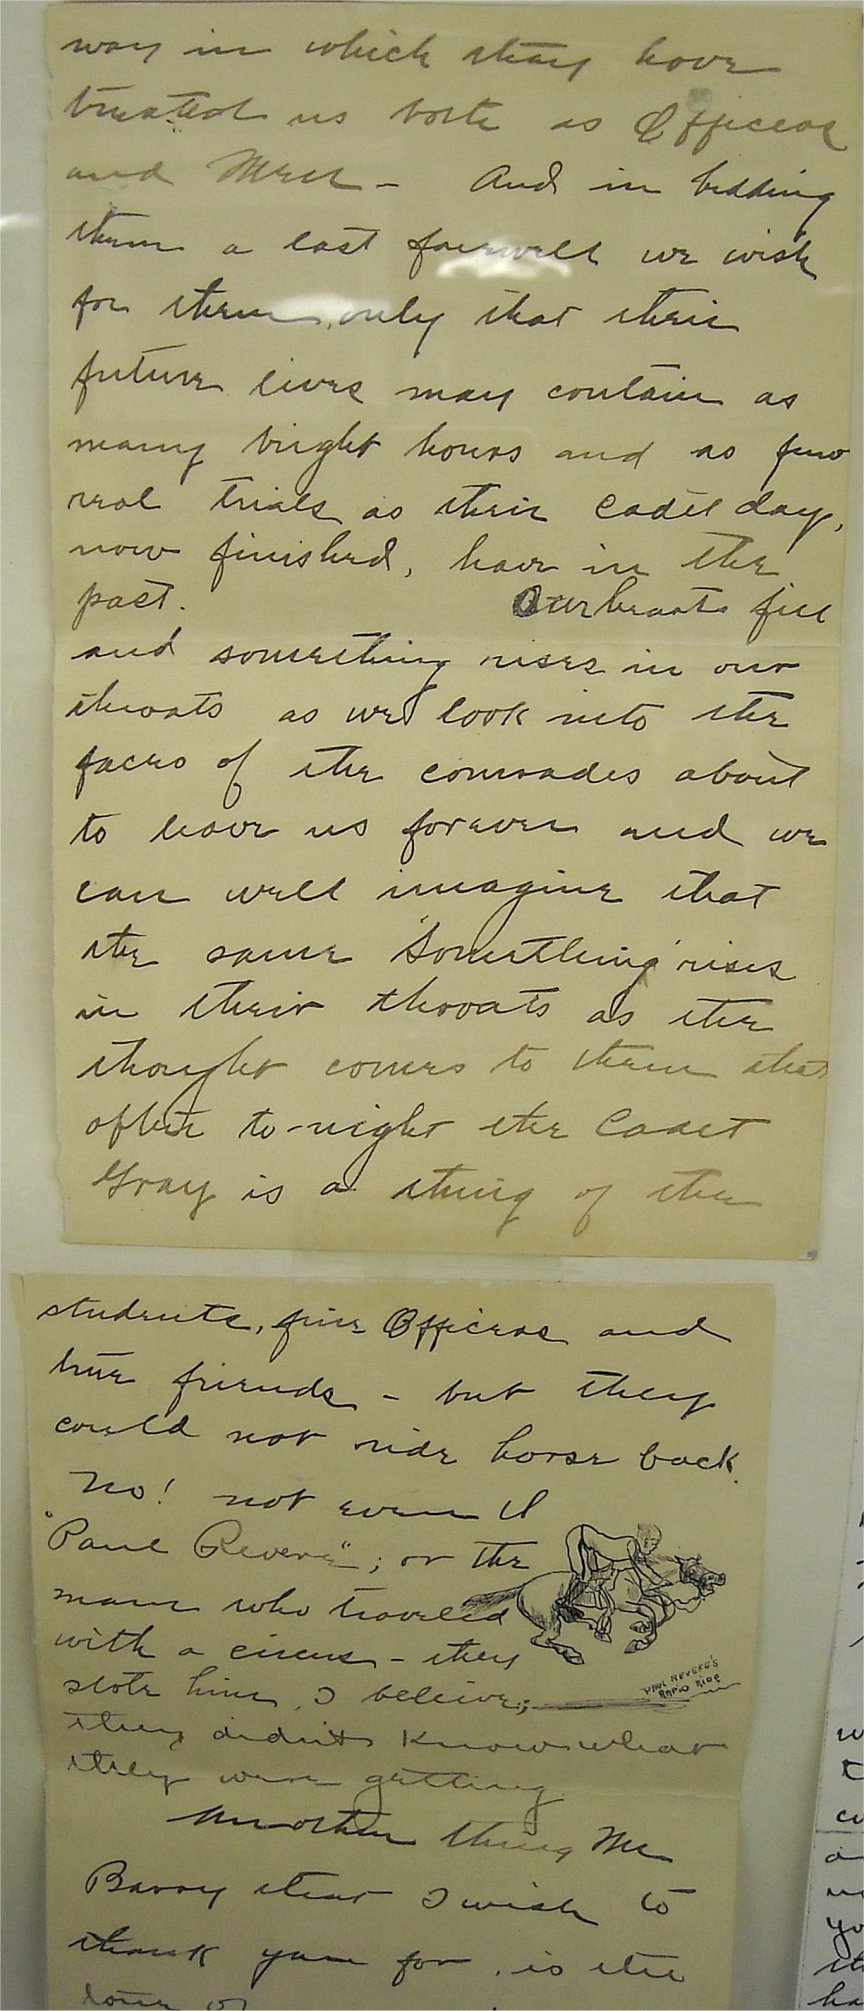 way in which they have
treated us both as Officers
and Men - And in bidding
them a last farewell we wish
for them, only that their
future lives may contain as
many bright hours and as few
real trials as their Cadet days,
now finished, have in the
past. Our hearts fill
and something rises in our
throats as we look into the
faces of the comrades about
to leave us forever and we
can well imagine that
the same "something" rises
in their throats as the
thought comes to them that
after to-night the Cadet
Gray is a thing of the
students, fine Officers and
true friends - but they
could not ride horse back.
No! not even
"Paul Revere"; or the
man who traveled
with a circus - they
stole him, I believe;
they didn't know what
they were getting
PAUL REVERE'S
RAPID RIDE
Another thing Mr
Barry that I wish to
thank you for, is the